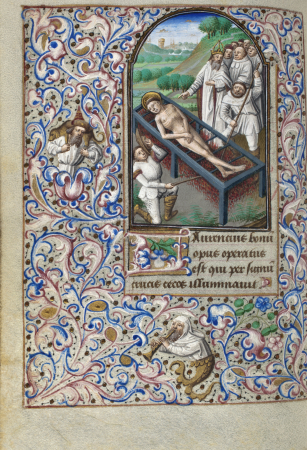 Laurencius bonū
opus operatus
est qui per signū
crucis cecos illuminauit